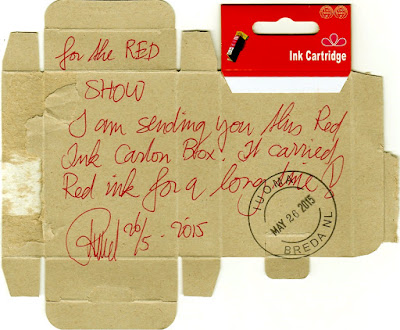 for the RED
Ink Cartridge
SHOW
I am sending you this Red
Ink Carton Box. It carried
Red ink for a long time!
26/5 - 2015
TUOMAL
MAY 26 2015
BREDA NL